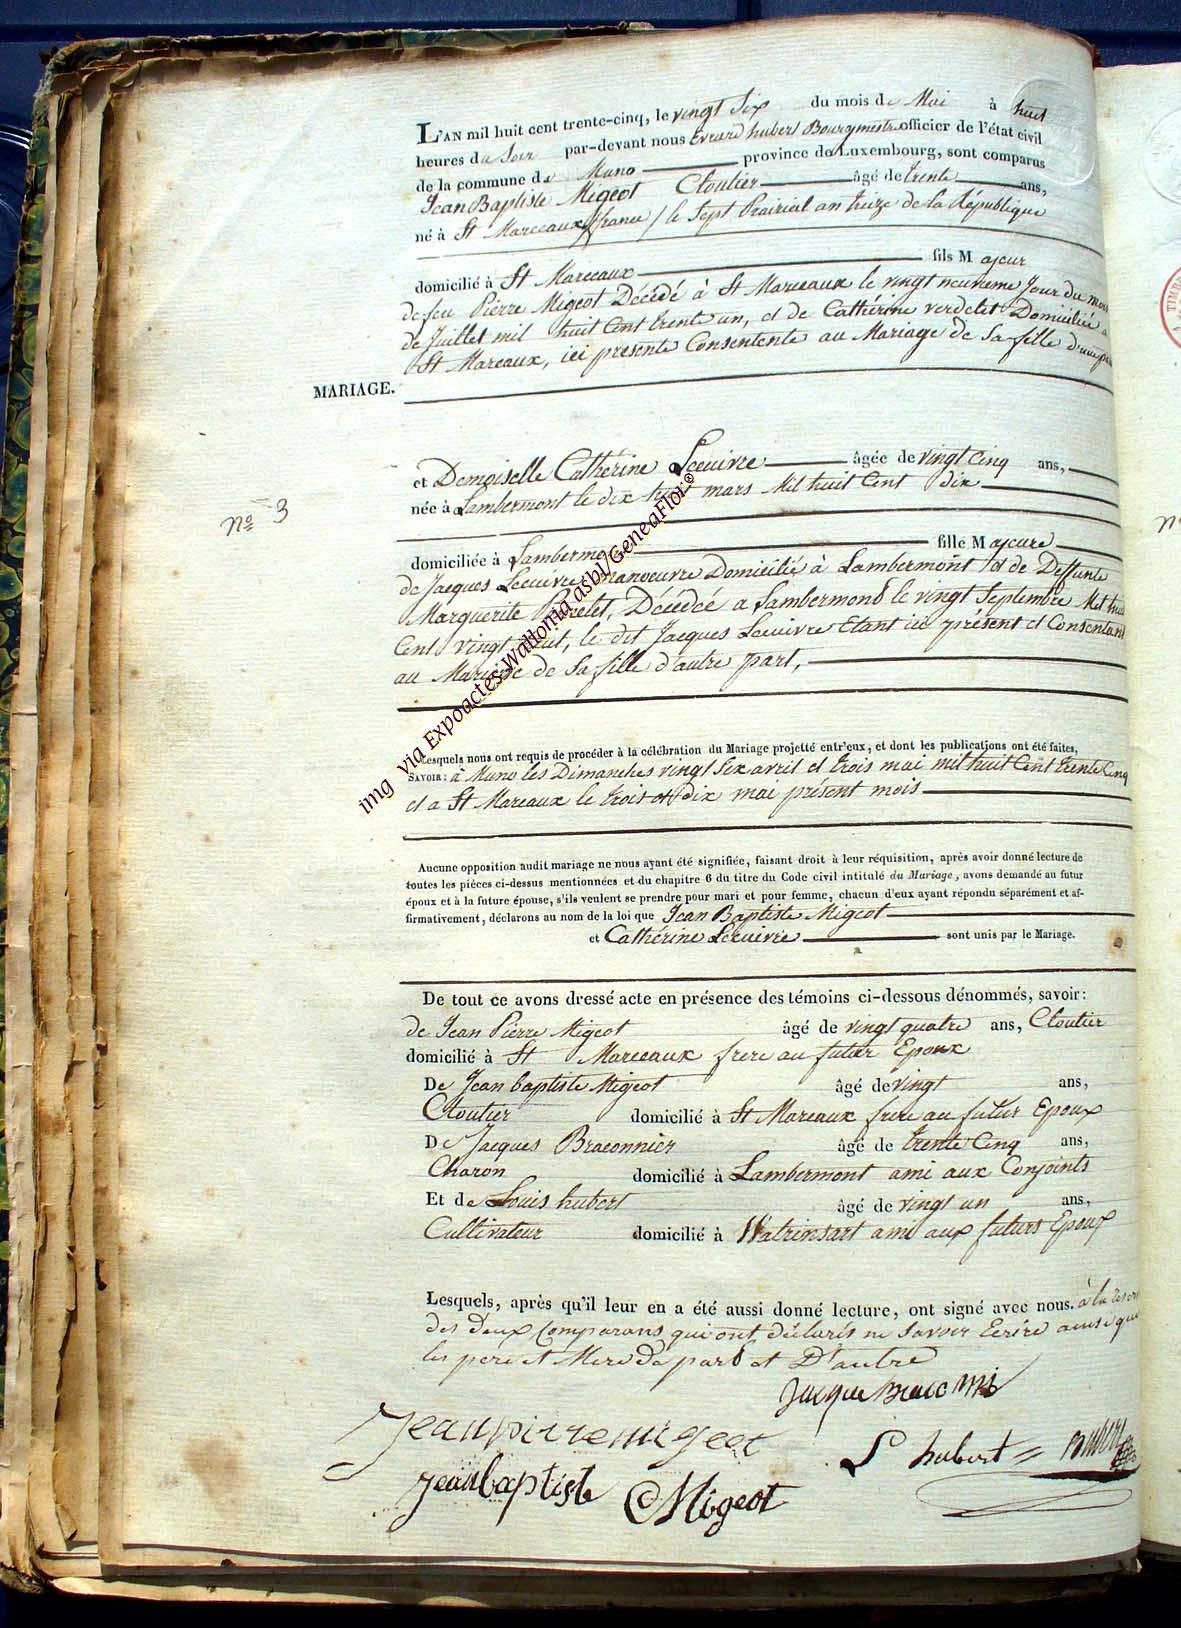 L'AN mil huit cent trente-cinq, le vingt Six du mois de Mai à huit
heures du Soir par-devant nous Evrard hubert Bourgmestre officier de l'état civil
de la commune de Muno province de Luxembourg, sont comparus
Jean Baptiste Migeot Cloutier âgé de trente ans,
né à St Marceaux (france) le Sept Prairial an treize de la République
domicilié à St Marceaux fils Majeur
de feu Pierre Migeot Décédé à St Marceaux le vingt neuvieme Jour du mois
de Juillet mil huit Cent trente un, et de Cathérine verdelet Domiciliée a
St Mareaux, ici presente Consentente au Mariage de Sa fille d'une part
MARIAGE.
N° 3
et Demoiselle Cathérine Lecuivre âgée de vingt Cinq ans,
née à Lambermont le dix mars Mil huit Cent Dix
domiciliée à Lambermont fille Majeure
de Jacques Lecuivre manoeuvre Domicilié à Lambermont et de Deffunte
Marguerite Décédée a Lambermont le vingt Septembre Mil huit
Cent vingt huit, le dit Jacques Lecuivre Etant ici présent et Consentant
au Mariage de Sa fille d'autre part,
Lesquels nous ont requis de procéder à la célébration du Mariage projetté entr'eux, et dont les publications ont été faites,
SAVOIR: à Muno les Dimanches vingt Six avril et trois mai mil huit Cent trente Cinq
et a St Mareaux le trois et dix mai présent mois
Aucune opposition audit mariage ne nous ayant été signifiée, faisant droit à leur réquisition, après avoir donné lecture de
toutes les pièces ci-dessus mentionnées et du chapitre 6 du titre du Code civil intitulé du Mariage, avons demandé au futur
époux et à la future épouse, s'ils veulent se prendre pour mari et pour femme, chacun d'eux ayant répondu séparément et af-
firmativement, déclarons au nom de la loi que Jean Baptiste Migeot
et Cathérine Lecuivre sont unis par le Mariage.
De tout ce avons dressé acte en présence des témoins ci-dessous dénommés, savoir:
de Jean Pierre Migeot âgé de vingt quatre ans, Cloutier
domicilié à St Mareeaux frere au futur Epoux
De Jean baptiste Migeot âgé de vingt ans,
Cloutier domicilié à St Mareaux frere au futur Epoux
De Jacques Braconnier âgé de trente Cinq ans,
Charon domicilié à Lambermont ami aux Conjoints
Et de Louis hubert âgé de vingt un ans,
Cultivateur domicilié à Watrinsart ami aux futurs Epoux
Lesquels, après qu'il leur en a été aussi donné lecture, ont signé avec nous. à la reserve
des deux Comparans qui ont déclarés ne Savoir Ecrire ainsi que
les pere et Mere de part et D'autre
Jeanpierre migeot
L hubert
jeanbaptiste Migeot
img via Expoactes-Wallonia asbl/GeneaFlor©